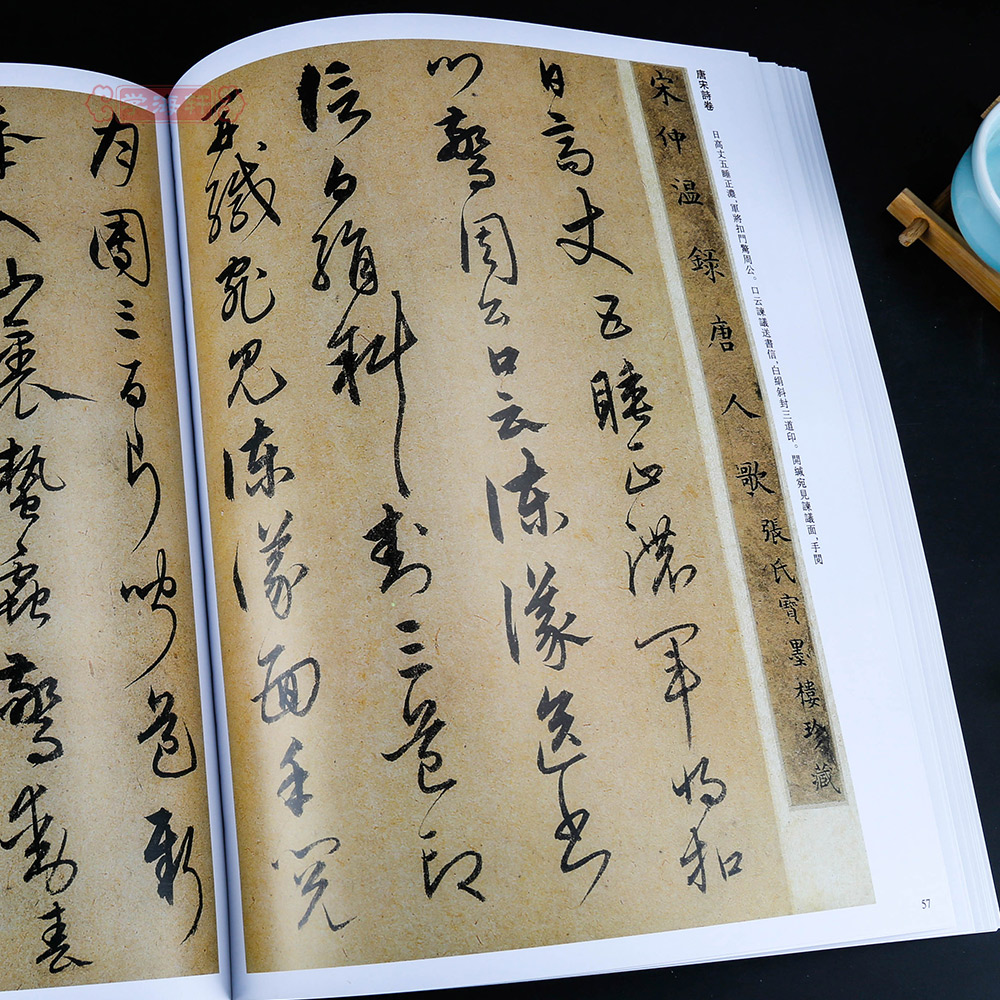 唐宋詩卷
日高丈五睡正濃，軍將扣門驚周公。口云諫議送書信，白絹斜封三道印。開緘宛見諫議面，手閱
宋仲溫錄唐人歌 張氏寶墨樓珍藏
日高丈五睡正濃軍將扣
門驚周公口云諫議送書
信白絹斜封三道印
開緘宛見諫議面手閱
月團三百片聞道新
年入山裏蟄蟲驚動春
57